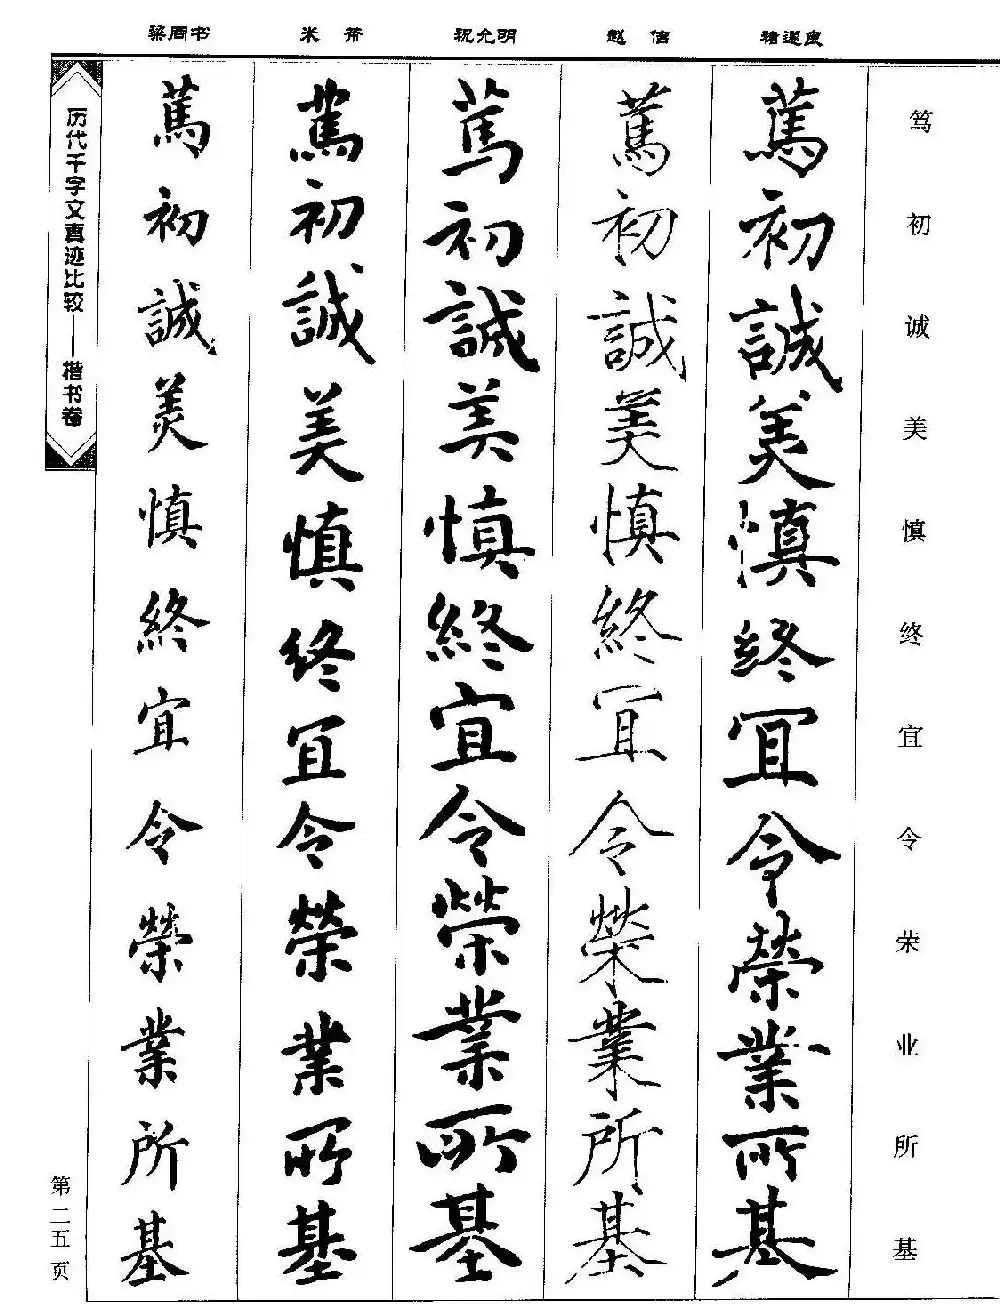 梁同书 米芾 祝允明 赵佶 褚遂良
笃初诚美慎终宜令荣业所基
篤初誠美慎終宜令榮業所基
篤初誠美慎終宜令榮業所基
篤初誠美慎終宜令榮業所基
篤初誠美慎終宜令榮業所基
篤初誠美慎終宜令榮業所基
历代千字文真迹比较——楷书卷
第二五页